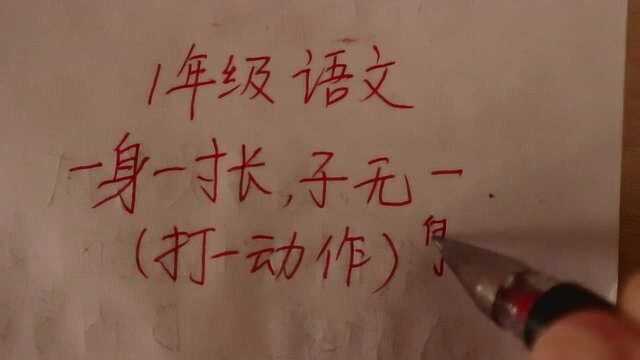 1年级 语文
一身一寸长,子无一
(打一动作)